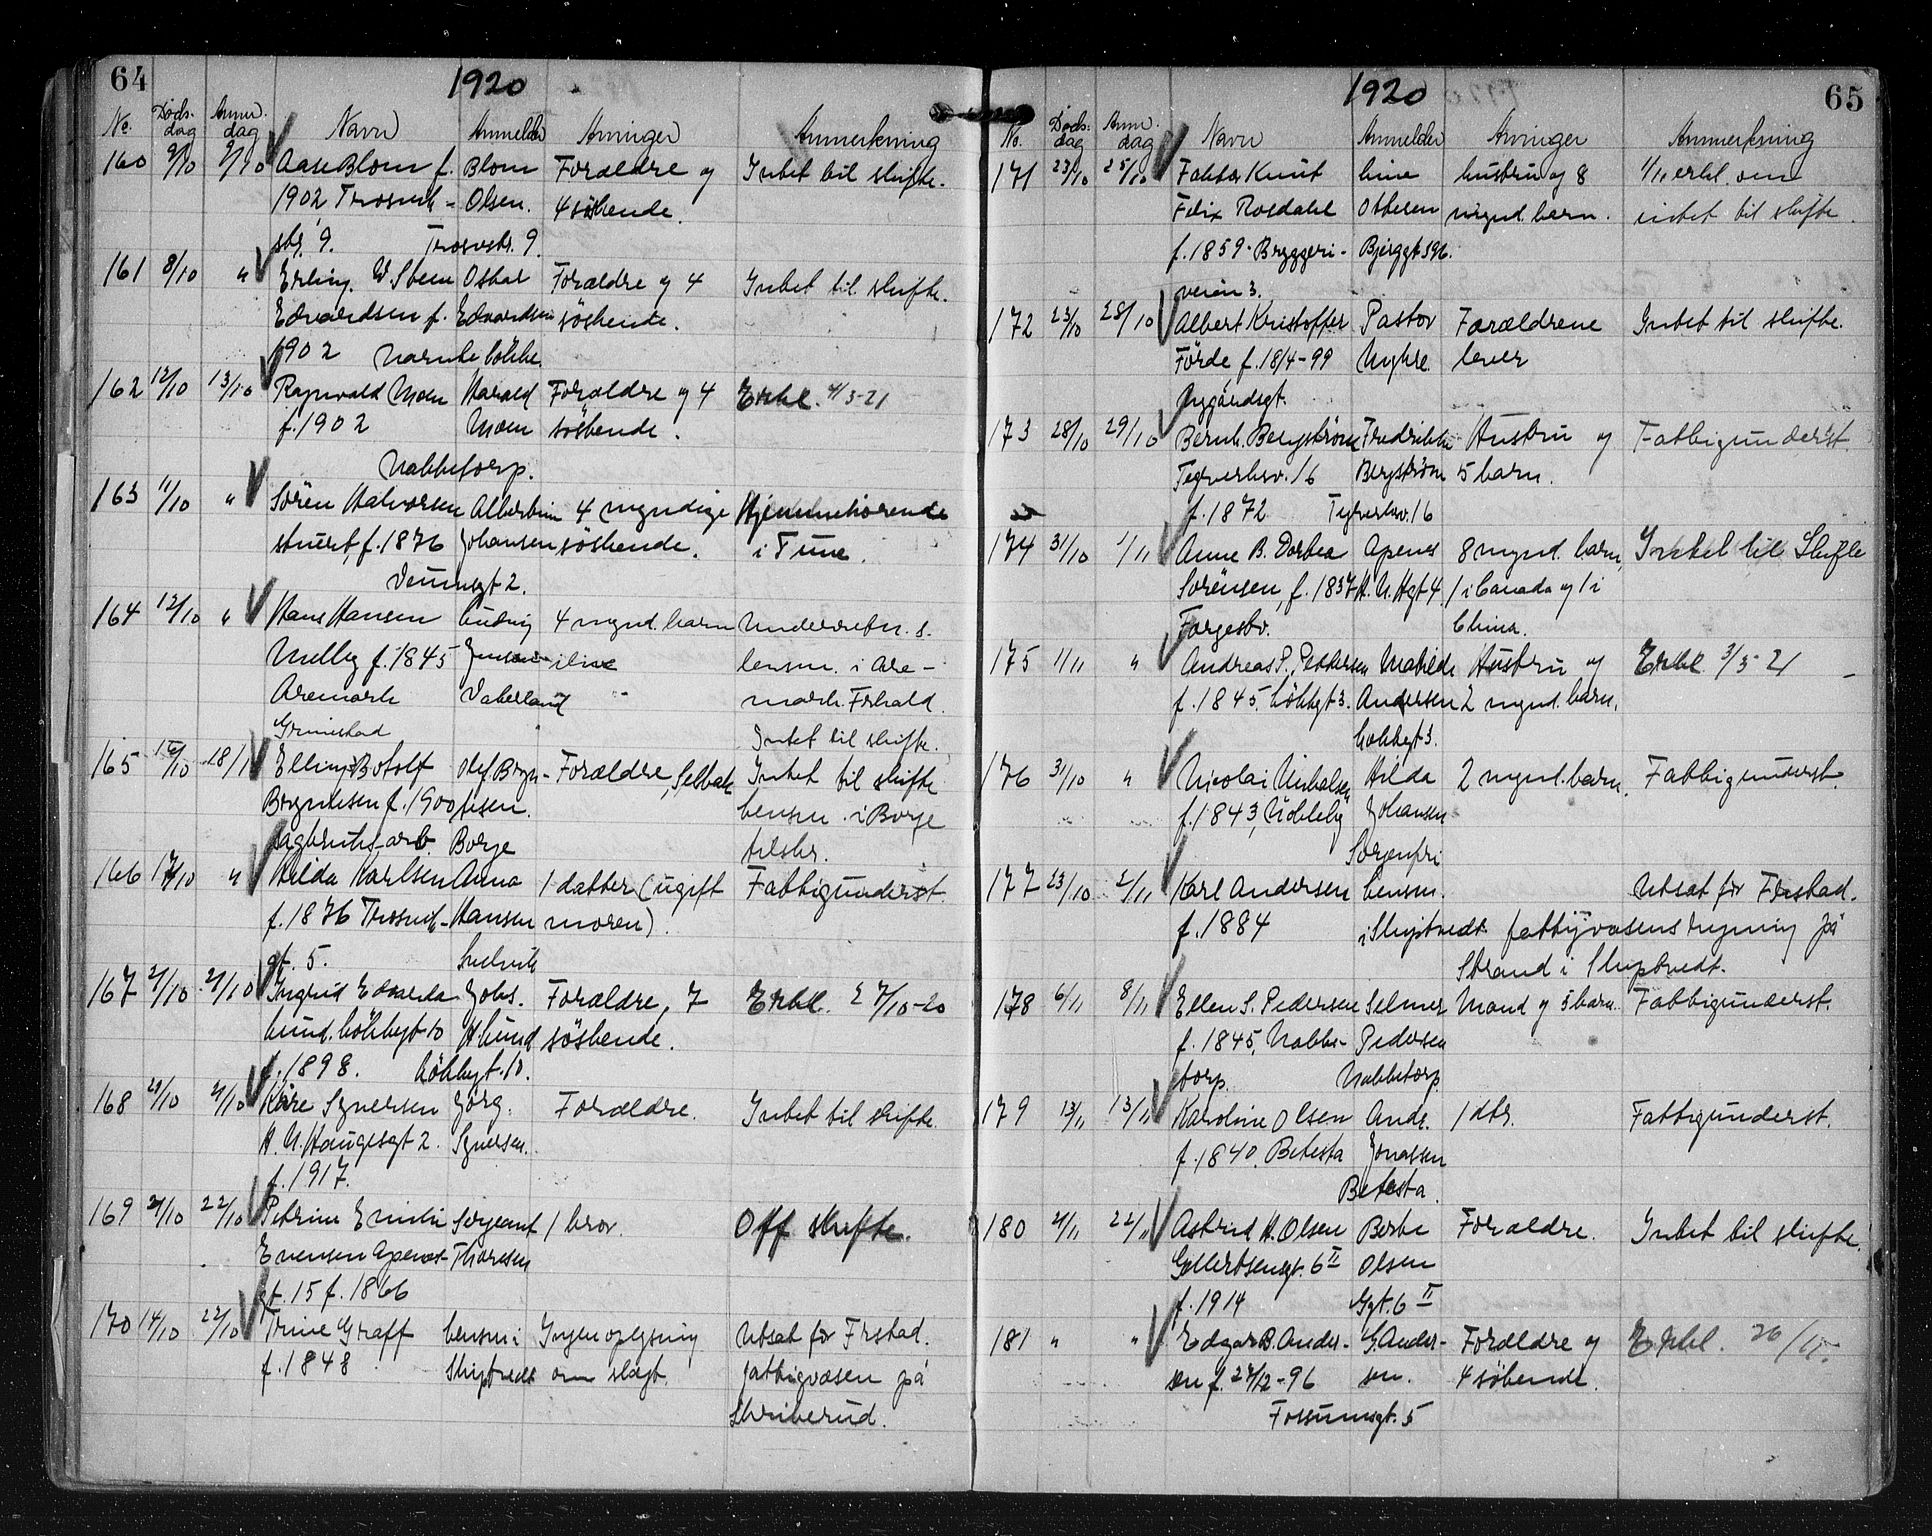 64
1920
No. Døds- dag Anm. dag Navn Anmelder Arvinger Anmerkning
160 9/10 9/10 Aase Blom f. Blom Forældre og Intet til skifte.
1902 Trosvik- Olsen. 4 søskende.
str. 9. Trosvstr. 9.
161 8/10 " Erling W. Steen Oskar Forældre og 4 Intet til skifte.
Edvardsen f. Edvardsen søskende.
1902 Narnte løkke.
162 12/10 13/10 Ragnvald Moen Harald Forældre og 4 Erkl. 4/3-21
f. 1902 Moen søskende.
Nabbetorp.
163 11/10 " Søren Halvorsen Albertine 4 myndige Hjemmehørende
stuert, f. 1876 Johansen søskende. i Tune.
Veumsgt 2.
164 12/10 " Hans Hansen Ludvig 4 mynd. barn Underretn. s.
Melby f. 1845 Jensen
lensm. i Are-
Aremark Vaterland mark. Frhald.
Grimstad Intet til skifte.
165 16/10 18/10 Elling Botolf Olef Bryn- Forældre, Selbak Intet til skifte
Brynhisen f. 1900 lensm. i Borge
sagbruks-arb. Borge tilskr.
166 17/10 " Hilda Karlsen Anna 1 datter (ugift Fattigunderst.
f. 1876 Trosvik- Hansen moren).
gt. 5.
167 21/10 21/10 Ingrid Edvarda Johs. Forældre, 7 Erkl. 27/10-20
Lund. Løkkegt 10 H. Lund søskende.
f. 1898. Løkkegt. 10.
168 21/10 21/10 Kåre Syversen Jørg. Forældre. Intet til skifte.
H. N. Haugesgt 2. Syversen.
f. 1917.
169 21/10 22/10 Petrine Emilie Sergeant 1 bror. Off skifte.
Evensen Apenes- Thoresen
gt. 15 f. 1866
170 14/10 22/10 Trine Graff Lensm i Ingen oplysning Utsat for Frstad.
f. 1848 Skiptvedt om slegt. fattigvæsen på
Skriverud.
65
1920
No. Døds. dag Anm. dag Navn Anmelder Arvinger Anmerkning
171 23/10 25/10 Faktor Knut Line hustru og 8 1/11 erkl. om
Felix Rosdahl Ottesen mynd. barn. intet til skifte.
f. 1859. Bryggeri- Bjerggt 59b.
veien 3.
172 23/10 28/10 Albert Kristoffer Pastor Forældrene Intet til skifte.
Førde f. 18/4-99 Myhre. lever
Nygårdsgt.
173 28/10 29/10 Bernh. Bergstrøm Fredrikke Hustru og Fattigunderst.
Teglverksv. 16 Bergstrøm 5 barn.
f. 1872 Teglverksv. 16
174 31/10 1/11 Anne B. Dortea Apenes 8 mynd. barn, Intet til Skifte
Sørensen, f. 1837 H. N. Hgt 4. 1 i Canada og 1 i
Torgestv. China.
175 1/11 " Andreas P. Pettersen Matilde Hustru og Erkl 3/5-21
f. 1845, Løkkegt 3. Andersen 2 mynd. barn.
Løkkegt 3.
176 31/10 " Nicolai Nicholsen Hilda 2 mynd. barn. Fattigunderst.
f. 1843, Johansen
Sorgenfri
177 23/10 2/11 Karl Andersen Lensm. Utsat for Frstad.
f. 1884 i Skiptvedt fattigvæsens regning på
Strand i Skiptvedt.
178 6/11 8/11 Ellen S. Pedersen Selmer Mand og 5 barn. Fattigunderst.
f. 1845, Nabbe- Pedersen
torp. Nabbetorp
179 13/11 13/11 Karoline Olsen Andr. 1 dtr. Fattigunderst.
f. 1840. Betesta Jonassen
Betesta.
180 21/11 22/11 Astrid H. Olsen Berte Forældre. Intet til skifte.
Gellertsensgt. 6 II Olsen
f. 1914 Ggt. 6 II
181 " " Edgar B. Ander- G. Ander- Forældre og Erkl. 26/11.
sen f. 27/12-96 sen. 4 søskende.
Fossumsgt. 5